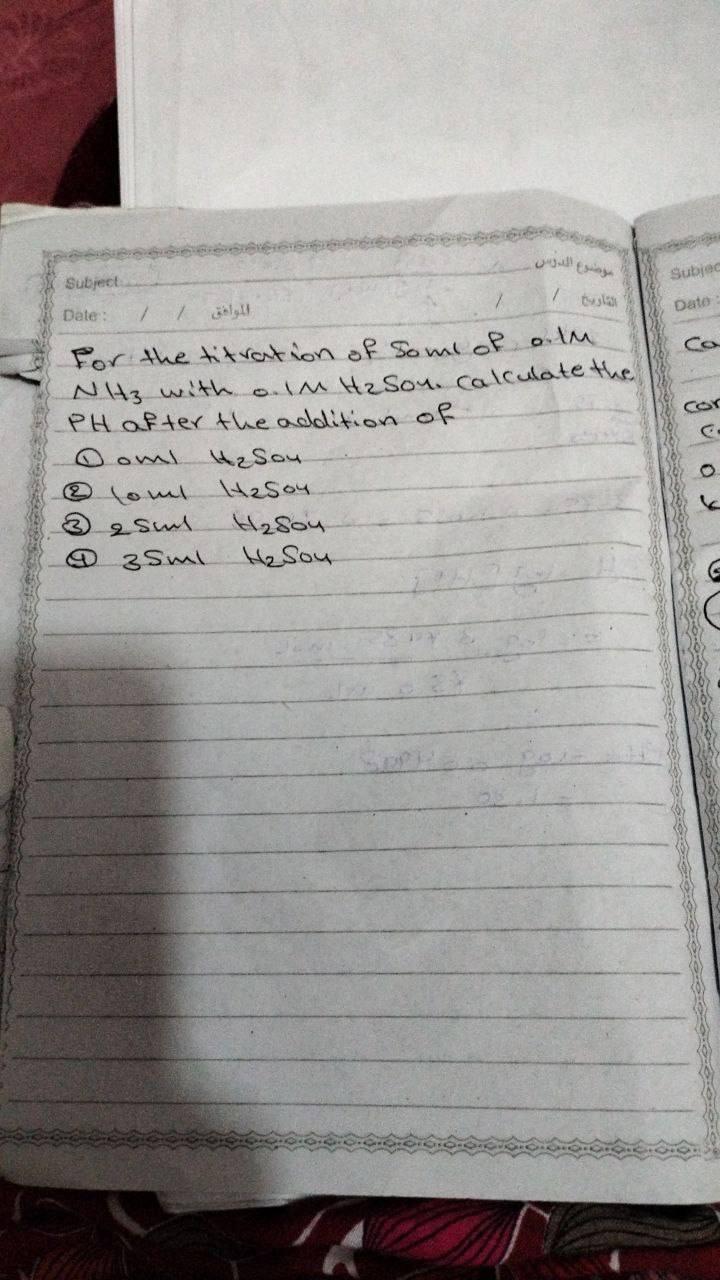 Subject موضوع الدرس
Date : / / الموافق / / التاريخ
For the titration of 50ml of 0.1M
NH3 with 0.1M H2SO4. calculate the
PH after the addition of
① 0ml H2SO4
② 10ml H2SO4
③ 25ml H2SO4
④ 35ml H2SO4
Subjec
Date :
Ca
con
C
0
K